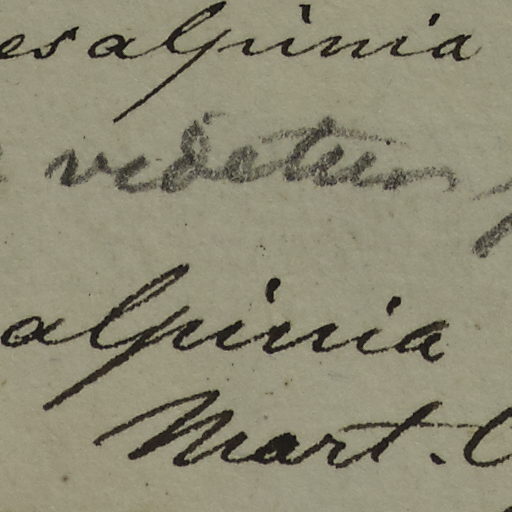 esalpinia
videtur
alpinia
Mart.